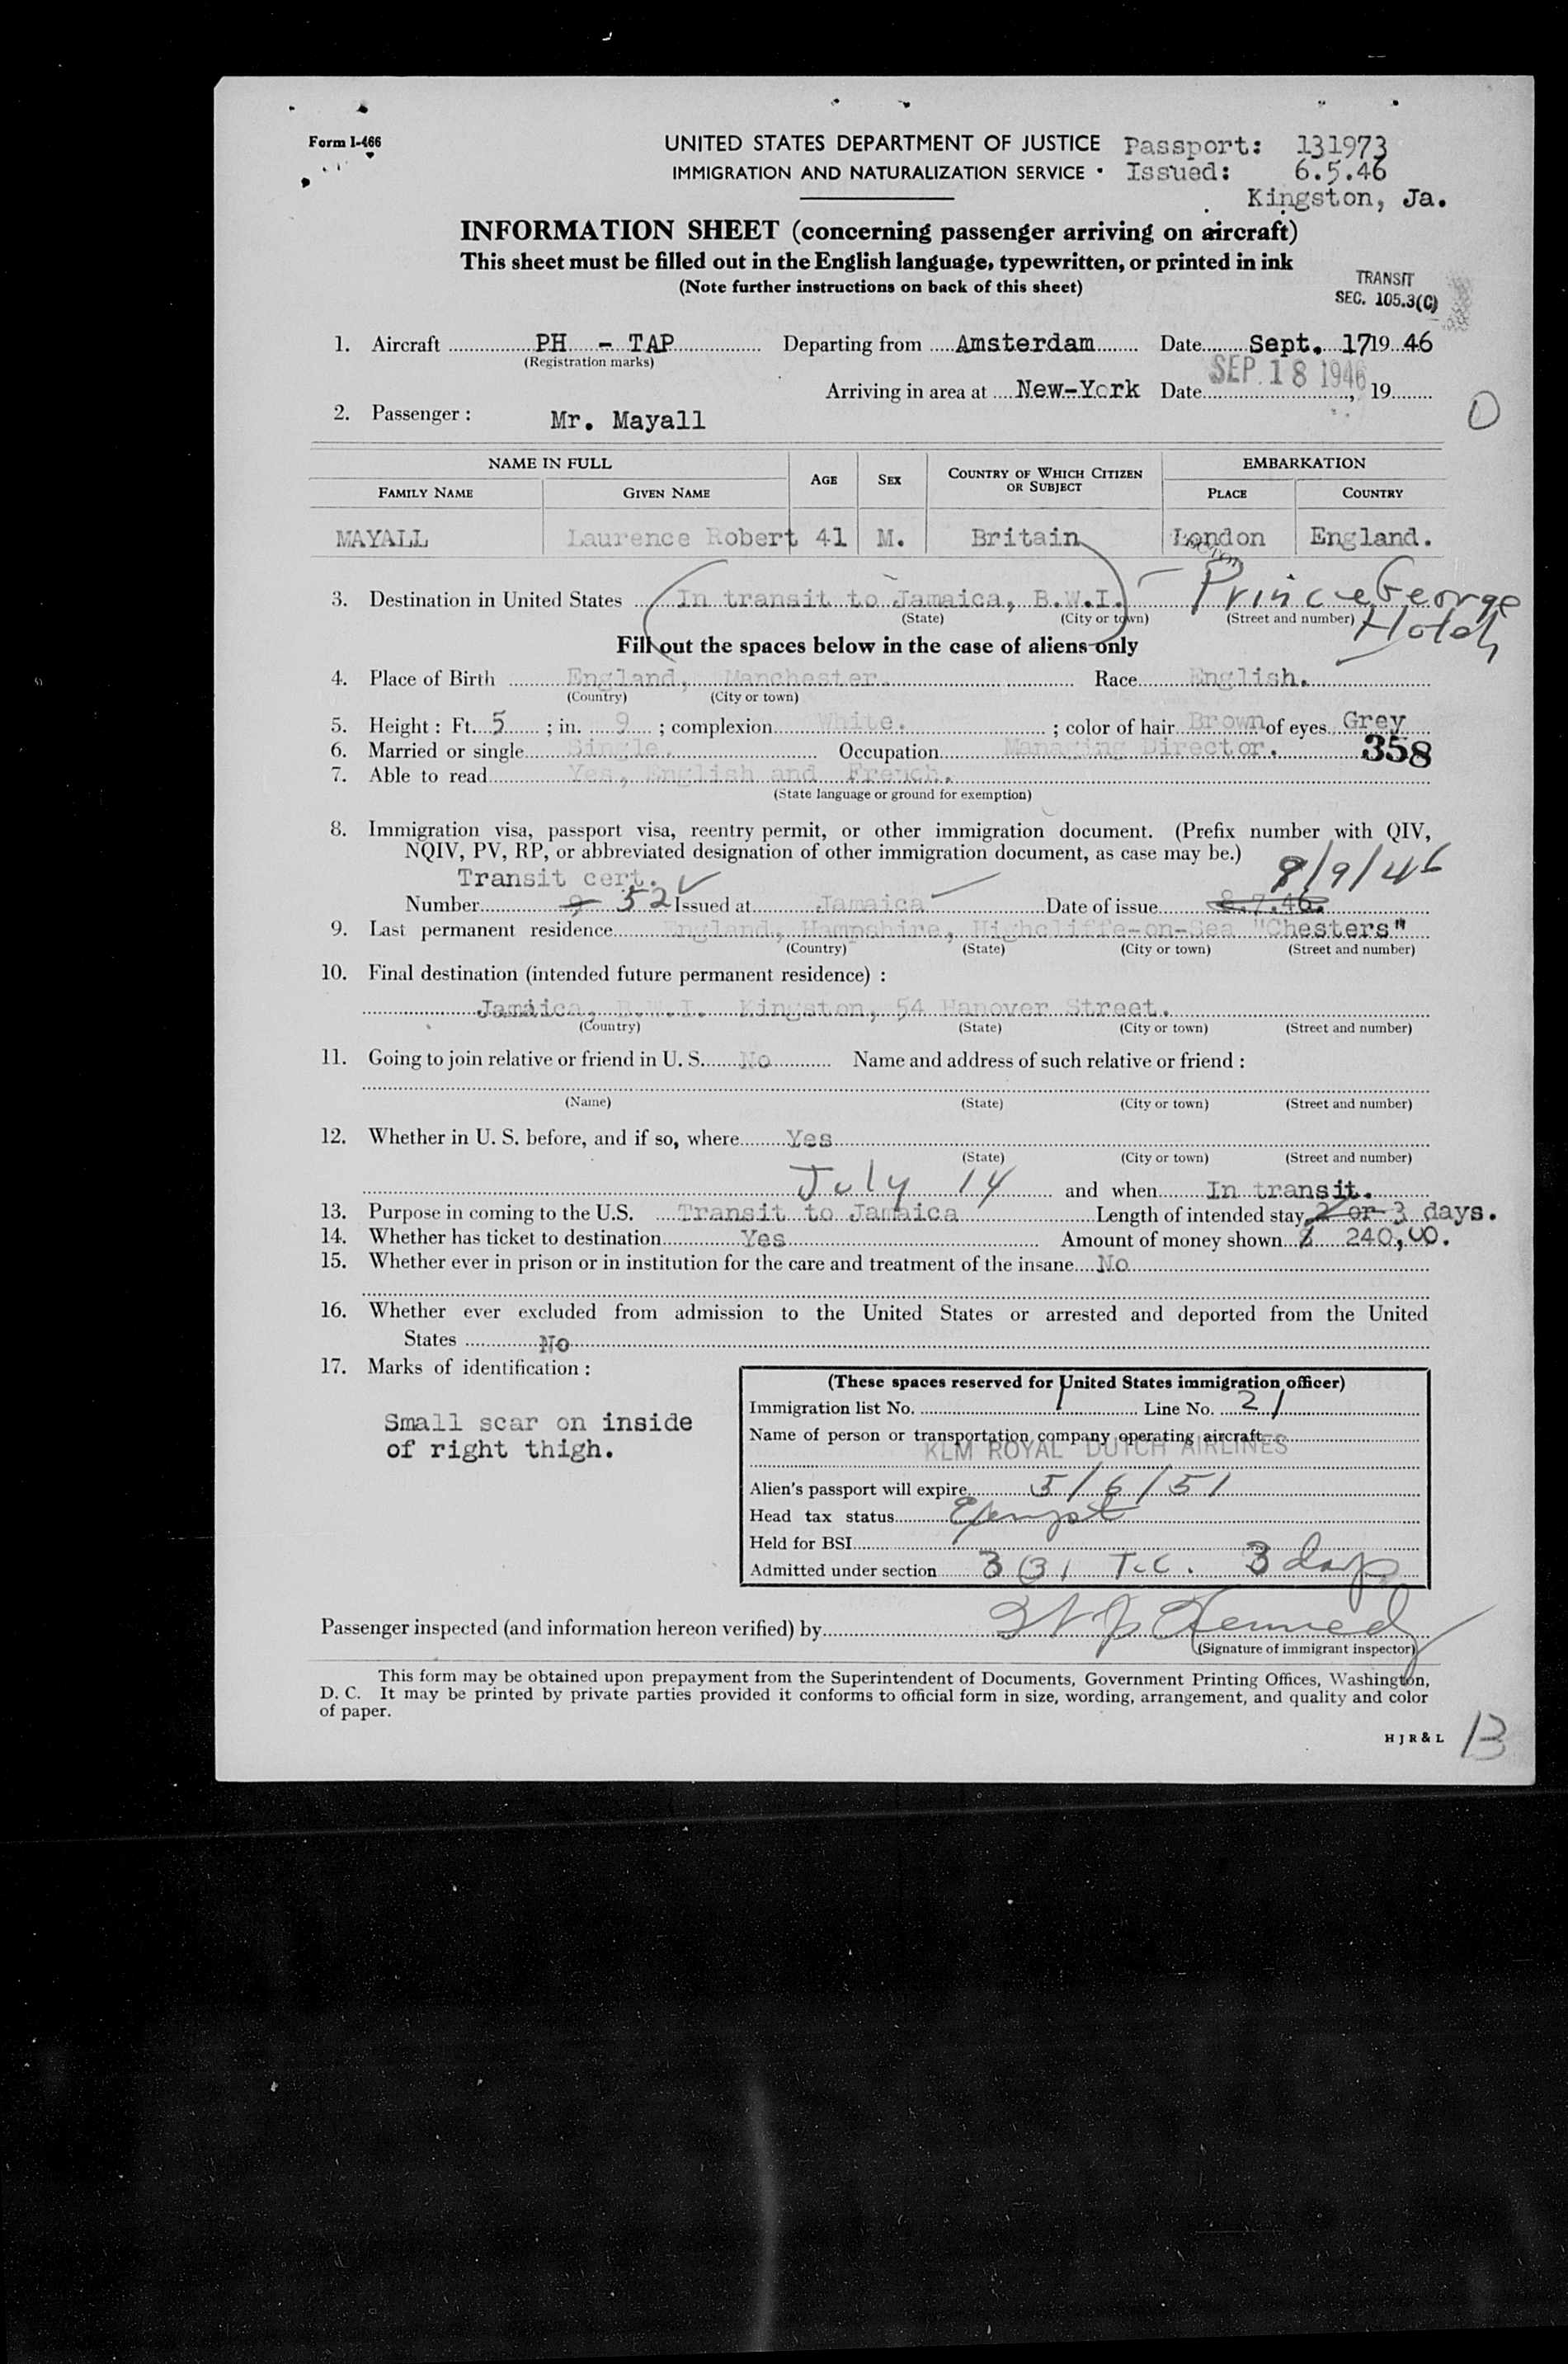 Form I-466
UNITED STATES DEPARTMENT OF JUSTICE Passport: 131973
IMMIGRATION AND NATURALIZATION SERVICE Issued: 6.5.46
Kingston, Ja.
INFORMATION SHEET (concerning passenger arriving on aircraft)
This sheet must be filled out in the English language, typewritten, or printed in ink
(Note further instructions on back of this sheet)
TRANSIT
SEC. 105.3(C)
1. Aircraft PH - TAP Departing from Amsterdam Date Sept. 17 19 46
(Registration marks)
Arriving in area at New-York Date SEP 18 1946, 19
2. Passenger : Mr. Mayall
O
NAME IN FULL AGE SEX COUNTRY OF WHICH CITIZEN OR SUBJECT EMBARKATION
FAMILY NAME GIVEN NAME PLACE COUNTRY
MAYALL Laurence Robert 41 M. Britain London England.
3. Destination in United States (In transit to Jamaica, B.W.I.) Prince George
(State) (City or town) (Street and number) Hotel
Fill out the spaces below in the case of aliens only
4. Place of Birth England, Manchester. Race English.
(Country) (City or town)
5. Height : Ft. 5 ; in. 9 ; complexion White. ; color of hair Brown of eyes Grey
6. Married or single Single. Occupation Managing Director. 358
7. Able to read Yes, English and French.
(State language or ground for exemption)
8. Immigration visa, passport visa, reentry permit, or other immigration document. (Prefix number with QIV,
NQIV, PV, RP, or abbreviated designation of other immigration document, as case may be.)
Transit cert. 9/9/46
Number 9 52 Issued at Jamaica Date of issue 8.7.46.
9. Last permanent residence England, Hampshire, Highcliffe-on-Sea "Chesters"
(Country) (State) (City or town) (Street and number)
10. Final destination (intended future permanent residence) :
Jamaica, B.W.I. Kingston, 54 Hanover Street.
(Country) (State) (City or town) (Street and number)
11. Going to join relative or friend in U. S. No Name and address of such relative or friend :
(Name) (State) (City or town) (Street and number)
12. Whether in U. S. before, and if so, where Yes
(State) (City or town) (Street and number)
July 14 and when In transit.
13. Purpose in coming to the U.S. Transit to Jamaica Length of intended stay 2 or 3 days.
14. Whether has ticket to destination Yes Amount of money shown $ 240,00.
15. Whether ever in prison or in institution for the care and treatment of the insane No
16. Whether ever excluded from admission to the United States or arrested and deported from the United
States No
17. Marks of identification :
Small scar on inside
of right thigh.
(These spaces reserved for United States immigration officer)
Immigration list No. 1 Line No. 21
Name of person or transportation company operating aircraft
KLM ROYAL DUTCH AIRLINES
Alien's passport will expire 5/6/51
Head tax status Exempt
Held for BSI
Admitted under section 3(3) T.C. 3 days
Passenger inspected (and information hereon verified) by Kennedy
(Signature of immigrant inspector)
This form may be obtained upon prepayment from the Superintendent of Documents, Government Printing Offices, Washington,
D. C. It may be printed by private parties provided it conforms to official form in size, wording, arrangement, and quality and color
of paper.
H J R & L
13